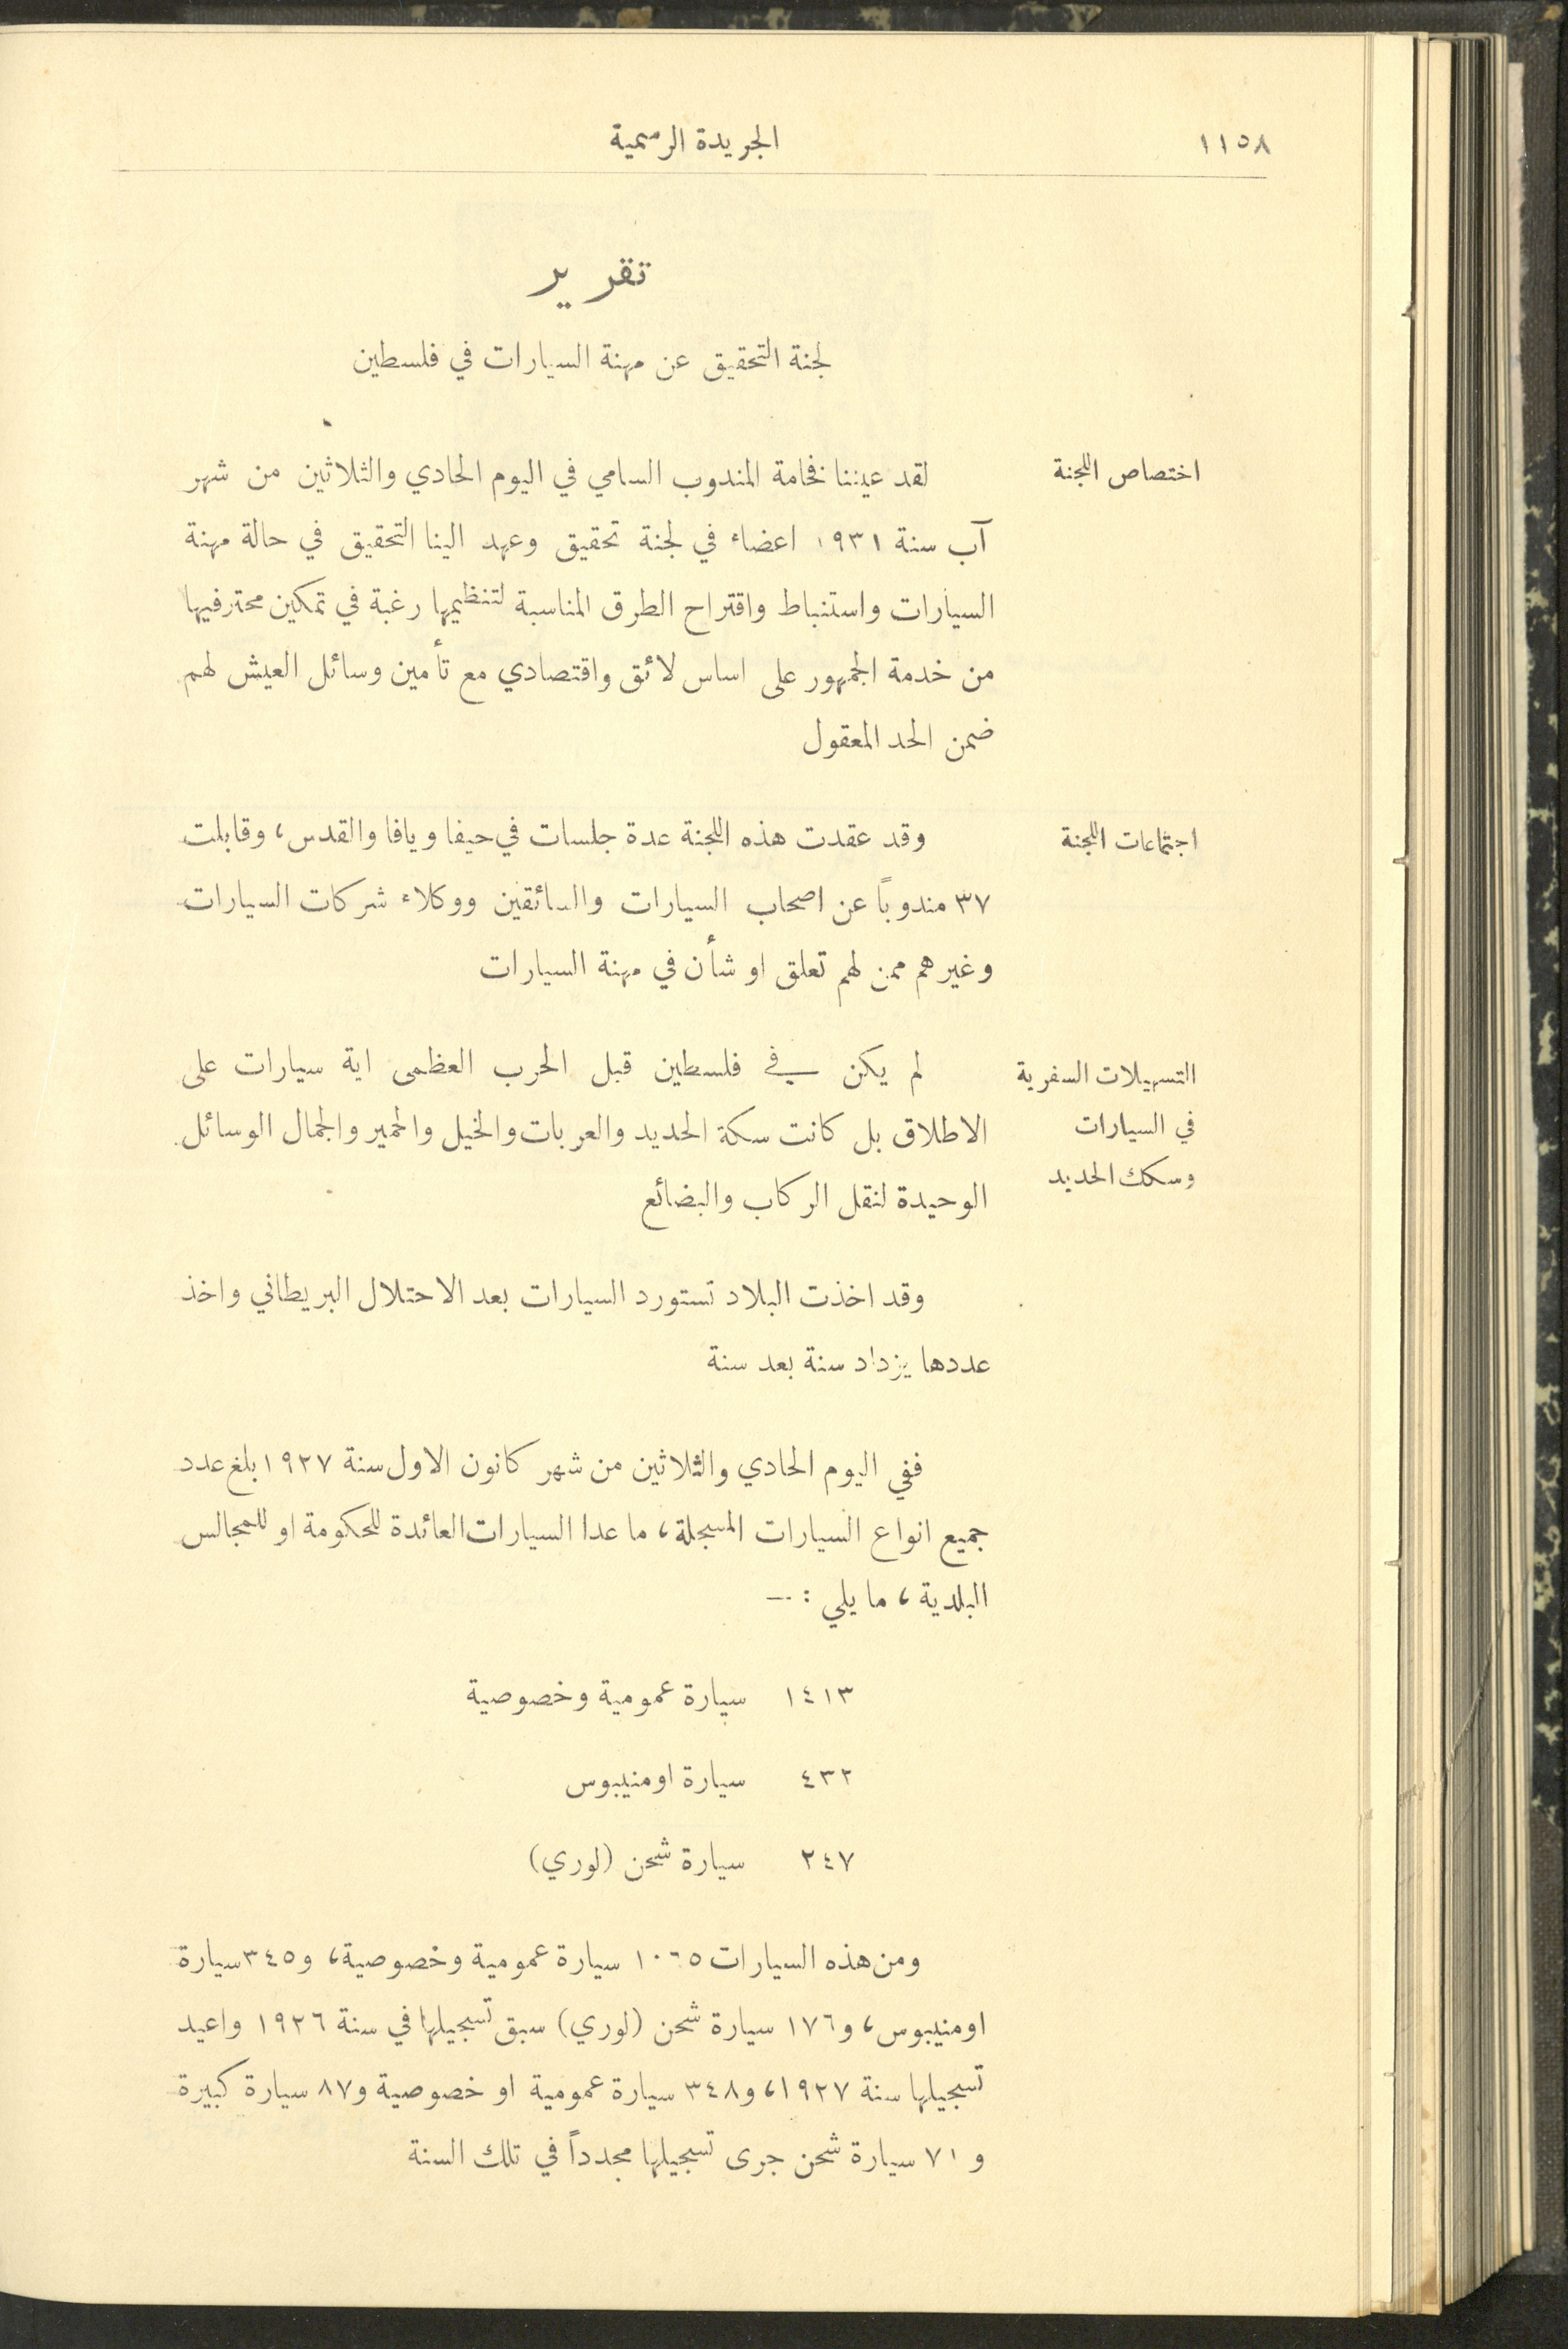 ١١٥٨
الجريدة الرسمية
تقرير
لجنة التحقيق عن مهنة السيارات في فلسطين
اختصاص اللجنة
لقد عيننا فخامة المندوب السامي في اليوم الحادي والثلاثين من شهر
آب سنة ١٩٣١ اعضاء في لجنة تحقيق وعهد الينا التحقيق في حالة مهنة
السيارات واستنباط واقتراح الطرق المناسبة لتنظيمها رغبة في تمكين محترفيها
من خدمة الجمهور على اساس لائق واقتصادي مع تأمين وسائل العيش لهم
ضمن الحد المعقول
اجتماعات اللجنة
وقد عقدت هذه اللجنة عدة جلسات في حيفا ويافا والقدس، وقابلت
٣٧ مندوباً عن اصحاب السيارات والسائقين ووكلاء شركات السيارات
وغيرهم ممن لهم تعلق او شأن في مهنة السيارات
التسهيلات السفرية
في السيارات
وسكك الحديد
لم يكن في فلسطين قبل الحرب العظمى اية سيارات على
الاطلاق بل كانت سكة الحديد والعربات والخيل والحمير والجمال الوسائل
الوحيدة لنقل الركاب والبضائع
وقد اخذت البلاد تستورد السيارات بعد الاحتلال البريطاني واخذ
عددها يزداد سنة بعد سنة
ففي اليوم الحادي والثلاثين من شهر كانون الاول سنة ١٩٢٧ بلغ عدد
جميع انواع السيارات المسجلة، ما عدا السيارات العائدة للحكومة او للمجالس
البلدية، ما يلي : —
١٤١٣ سيارة عمومية وخصوصية
٤٣٢ سيارة اومنيبوس
٢٤٧ سيارة شحن (لوري)
ومن هذه السيارات ١٠٦٥ سيارة عمومية وخصوصية، و٣٤٥ سيارة
اومنيبوس، و١٧٦ سيارة شحن (لوري) سبق تسجيلها في سنة ١٩٢٦ واعيد
تسجيلها سنة ١٩٢٧، و٣٤٨ سيارة عمومية او خصوصية و٨٧ سيارة كبيرة
و ٧١ سيارة شحن جرى تسجيلها مجدداً في تلك السنة